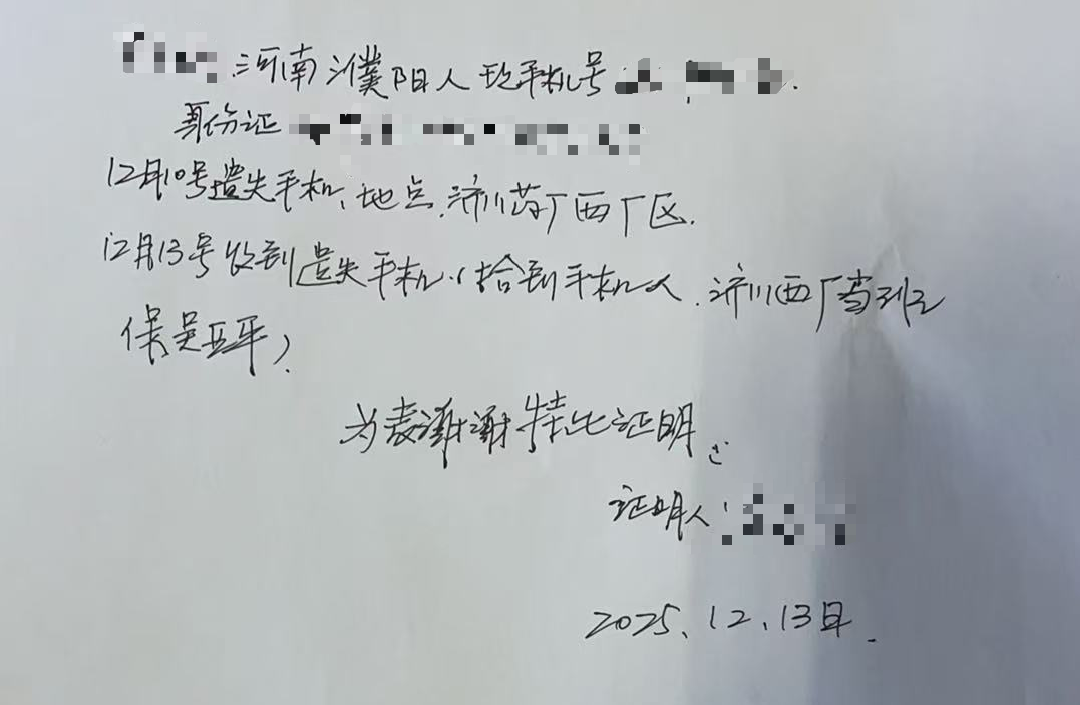 河南濮阳人 现手机号
身份证
12月10号遗失手机、地点.济川药厂西厂区.
12月13号收到遗失手机.(拾到手机人.济川西厂当班
保吴亚平).
为表谢谢特此证明.
证明人:
2025、12、13日.